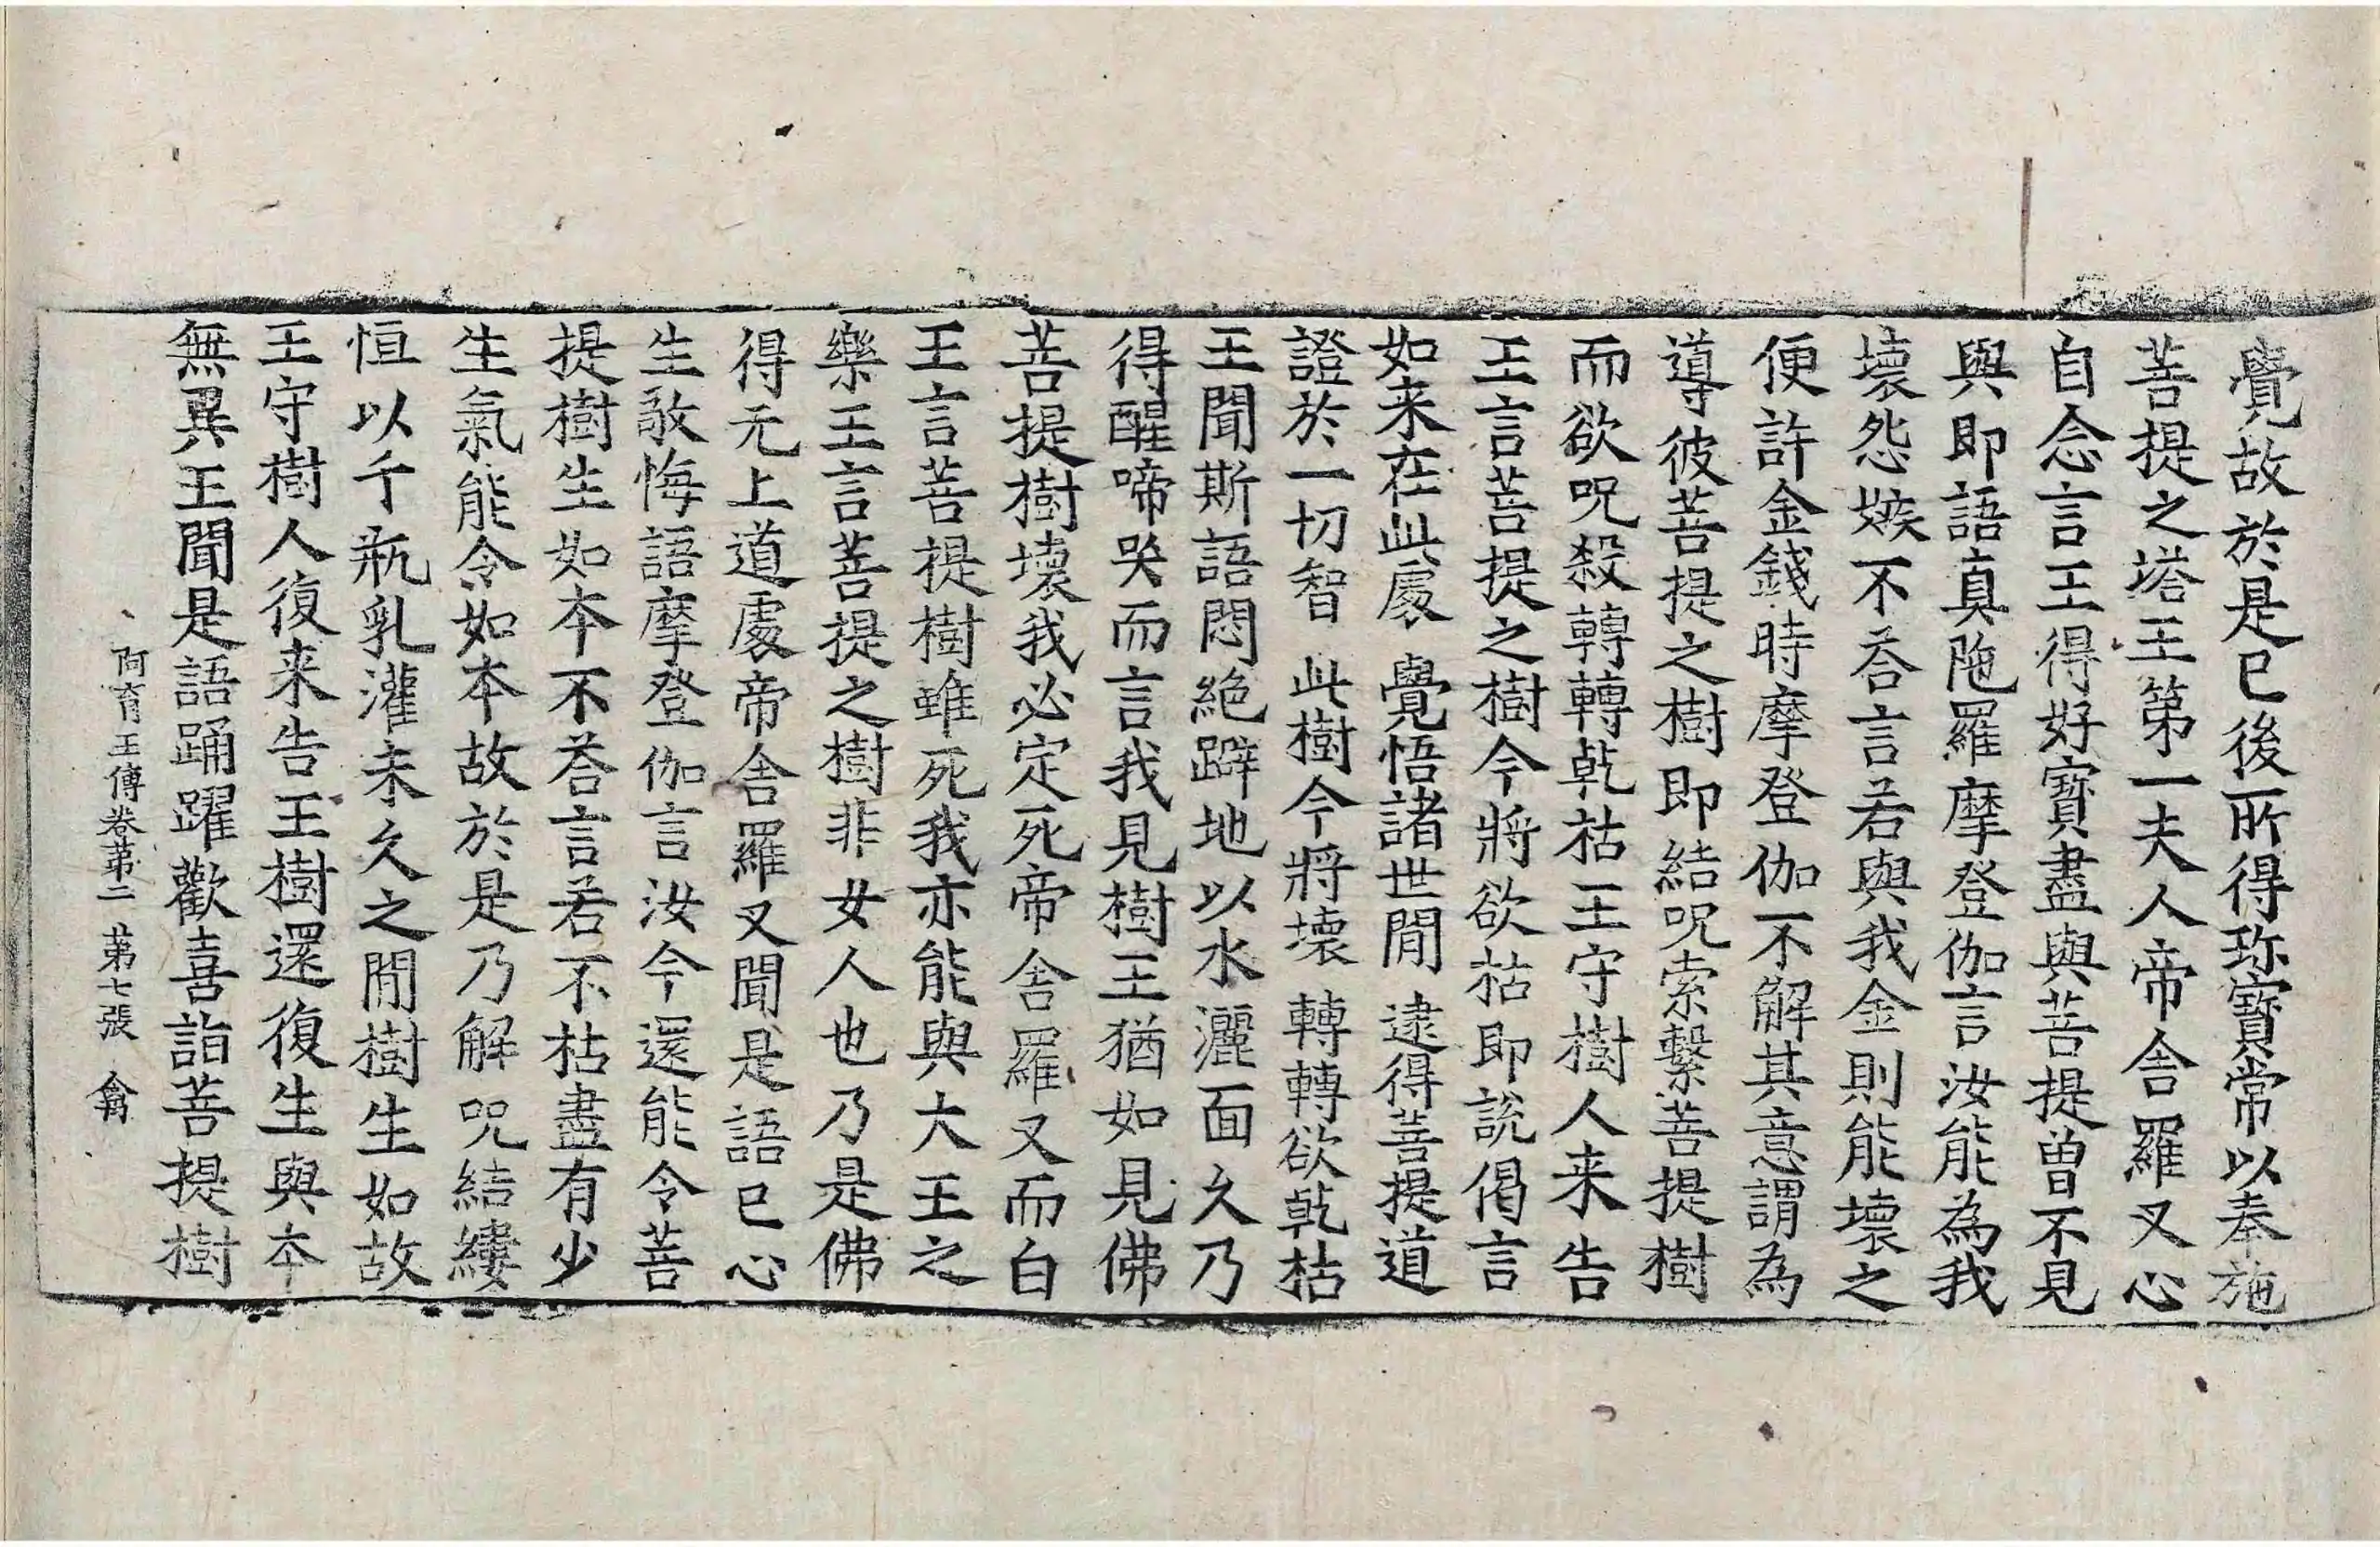 覺故於是已後所得珎寳常以奉施
菩提之塔王第一夫人帝舎羅叉心
自念言王得好寳盡與菩提曽不見
與即語真陁羅摩登伽言汝能為我
壞怨嫉不荅言若與我金則能壞之
便許金錢時摩登伽不解其意謂為
導彼菩提之樹即結呪索繫菩提樹
而欲呪殺轉轉乹枯王守樹人来告
王言菩提之樹今將欲枯即說偈言
如来在此處　覺悟諸世閒　逮得菩提道
證於一切智　此樹今將壞　轉轉欲乹枯
王聞斯語悶絶躃地以水灑面久乃
得醒啼哭而言我見樹王猶如見佛
菩提樹壞我必定死帝舎羅叉而白
王言菩提樹雖死我亦能與大王之
樂王言菩提之樹非女人也乃是佛
得无上道處帝舎羅叉聞是語已心
生敬悔語摩登伽言汝今還能令菩
提樹生如本不荅言若不枯盡有少
生氣能令如本故於是乃解呪結縷
恒以千瓶乳灌未久之閒樹生如故
王守樹人復来告王樹還復生與本
無異王聞是語踊躍歡喜詣菩提樹
阿育王傳卷第二　第七張　禽